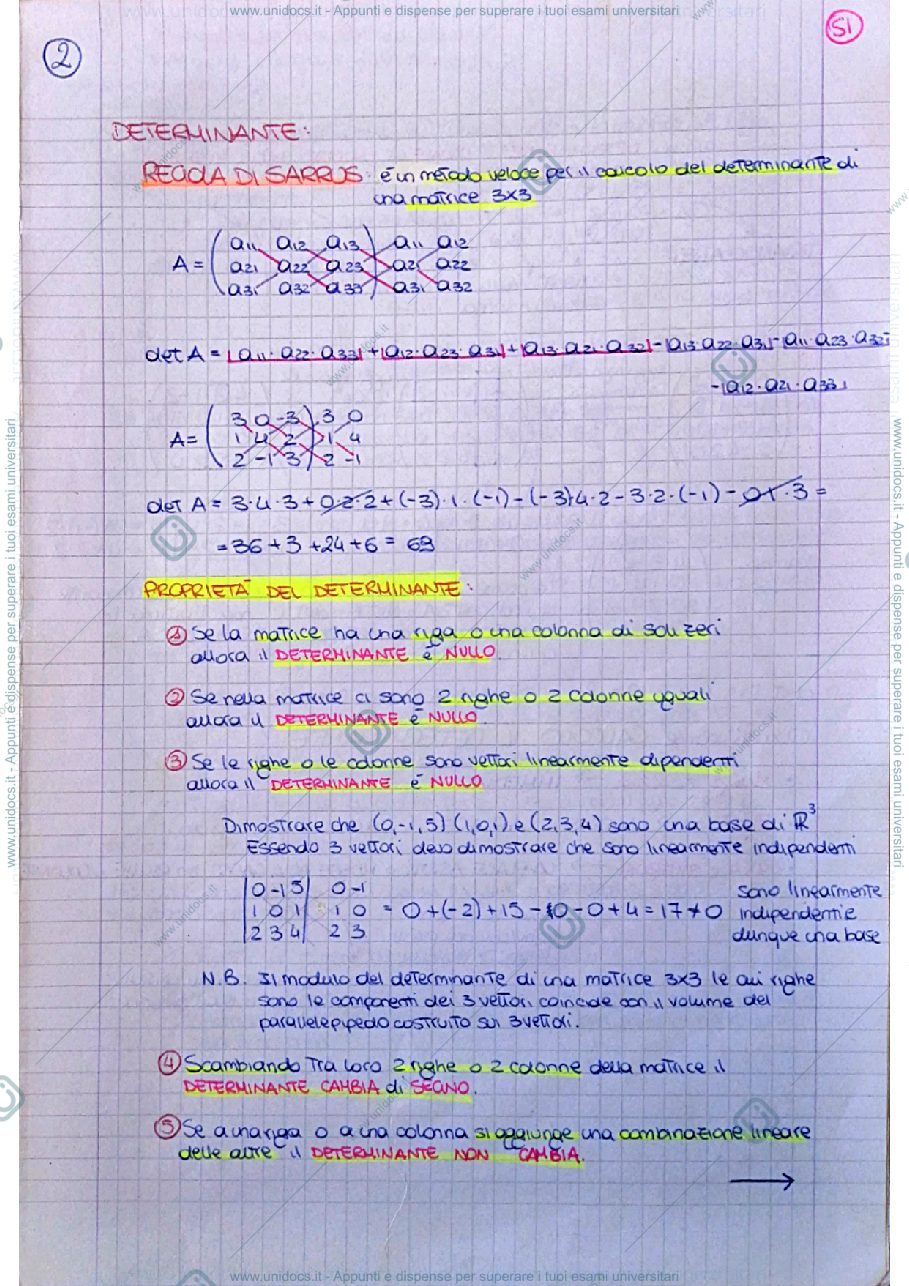 www.unidocs.it - Appunti e dispense per superare i tuoi esami universitari
2
S1
DETERMINANTE:
REGOLA DI SARRUS: è un metodo veloce per il calcolo del determinante di
una matrice 3x3
A = ( a11 a12 a13 ) a11 a12
a21 a22 a23 a21 a22
a31 a32 a33 a31 a32
det A = |a11·a22·a33|+|a12·a23·a31|+|a13·a21·a32|-|a13·a22·a31|-|a11·a23·a32|
-|a12·a21·a33|
A = ( 3 0 -3 ) 3 0
1 4 2 1 4
2 -1 3 2 -1
det A = 3·4·3+0·2·2+(-3)·1·(-1)-(-3)4·2-3·2·(-1)-01·3=
=36+3+24+6= 69
PROPRIETÀ DEL DETERMINANTE:
1 Se la matrice ha una riga o una colonna di soli zeri
allora il DETERMINANTE è NULLO.
2 Se nella matrice ci sono 2 righe o 2 colonne uguali
allora il DETERMINANTE è NULLO
3 Se le righe o le colonne sono vettori linearmente dipendenti
allora il DETERMINANTE è NULLO
Dimostrare che (0,-1,5) (1,0,1) e (2,3,4) sono una base di R³
Essendo 3 vettori devo dimostrare che sono linearmente indipendenti
|0 -1 5| 0 -1
|1 0 1| 1 0 = 0+(-2)+15-10-0+4=17≠0
|2 3 4| 2 3
sono linearmente
indipendenti e
dunque una base
N.B. Il modulo del determinante di una matrice 3x3 le cui righe
sono le componenti dei 3 vettori coincide con il volume del
parallelepipedo costruito sui 3 vettori.
4 Scambiando tra loro 2 righe o 2 colonne della matrice il
DETERMINANTE CAMBIA di SEGNO.
5 Se a una riga o a una colonna si aggiunge una combinazione lineare
delle altre il DETERMINANTE NON CAMBIA.
→
www.unidocs.it - Appunti e dispense per superare i tuoi esami universitari
www.unidocs.it - Appunti e dispense per superare i tuoi esami universitari
www.unidocs.it - Appunti e dispense per superare i tuoi esami universitari